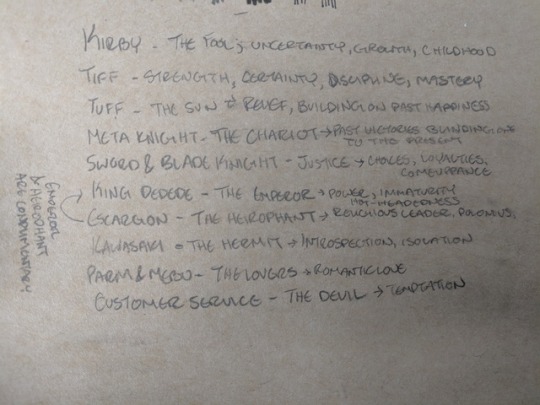 KIRBY - THE FOOL'S UNCERTAINTY, GROWTH, CHILDHOOD
TIFF - STRENGTH, CERTAINTY, DISCIPLINE, MASTERY
TUFF - THE SUN → RELIEF, BUILDING ON PAST HAPPINESS
META KNIGHT - THE CHARIOT → PAST VICTORIES BLINDING ONE
TO THE PRESENT
SWORD & BLADE KNIGHT - JUSTICE → CHOICES, LOYALTIES,
COMEUPPANCE
KING DEDEDE - THE EMPEROR → POWER, IMMATURITY
HOT-HEADEDNESS
ESCARGON - THE HEIROPHANT → RELIGIOUS LEADER, POLONIUS,
KAWASAKI - THE HERMIT → INTROSPECTION, ISOLATION
PARM & MEBU - THE LOVERS → ROMANTIC LOVE
CUSTOMER SERVICE - THE DEVIL → TEMPTATION
EMPEROR
& HEIROPHANT
ARE COMPLIMENTARY